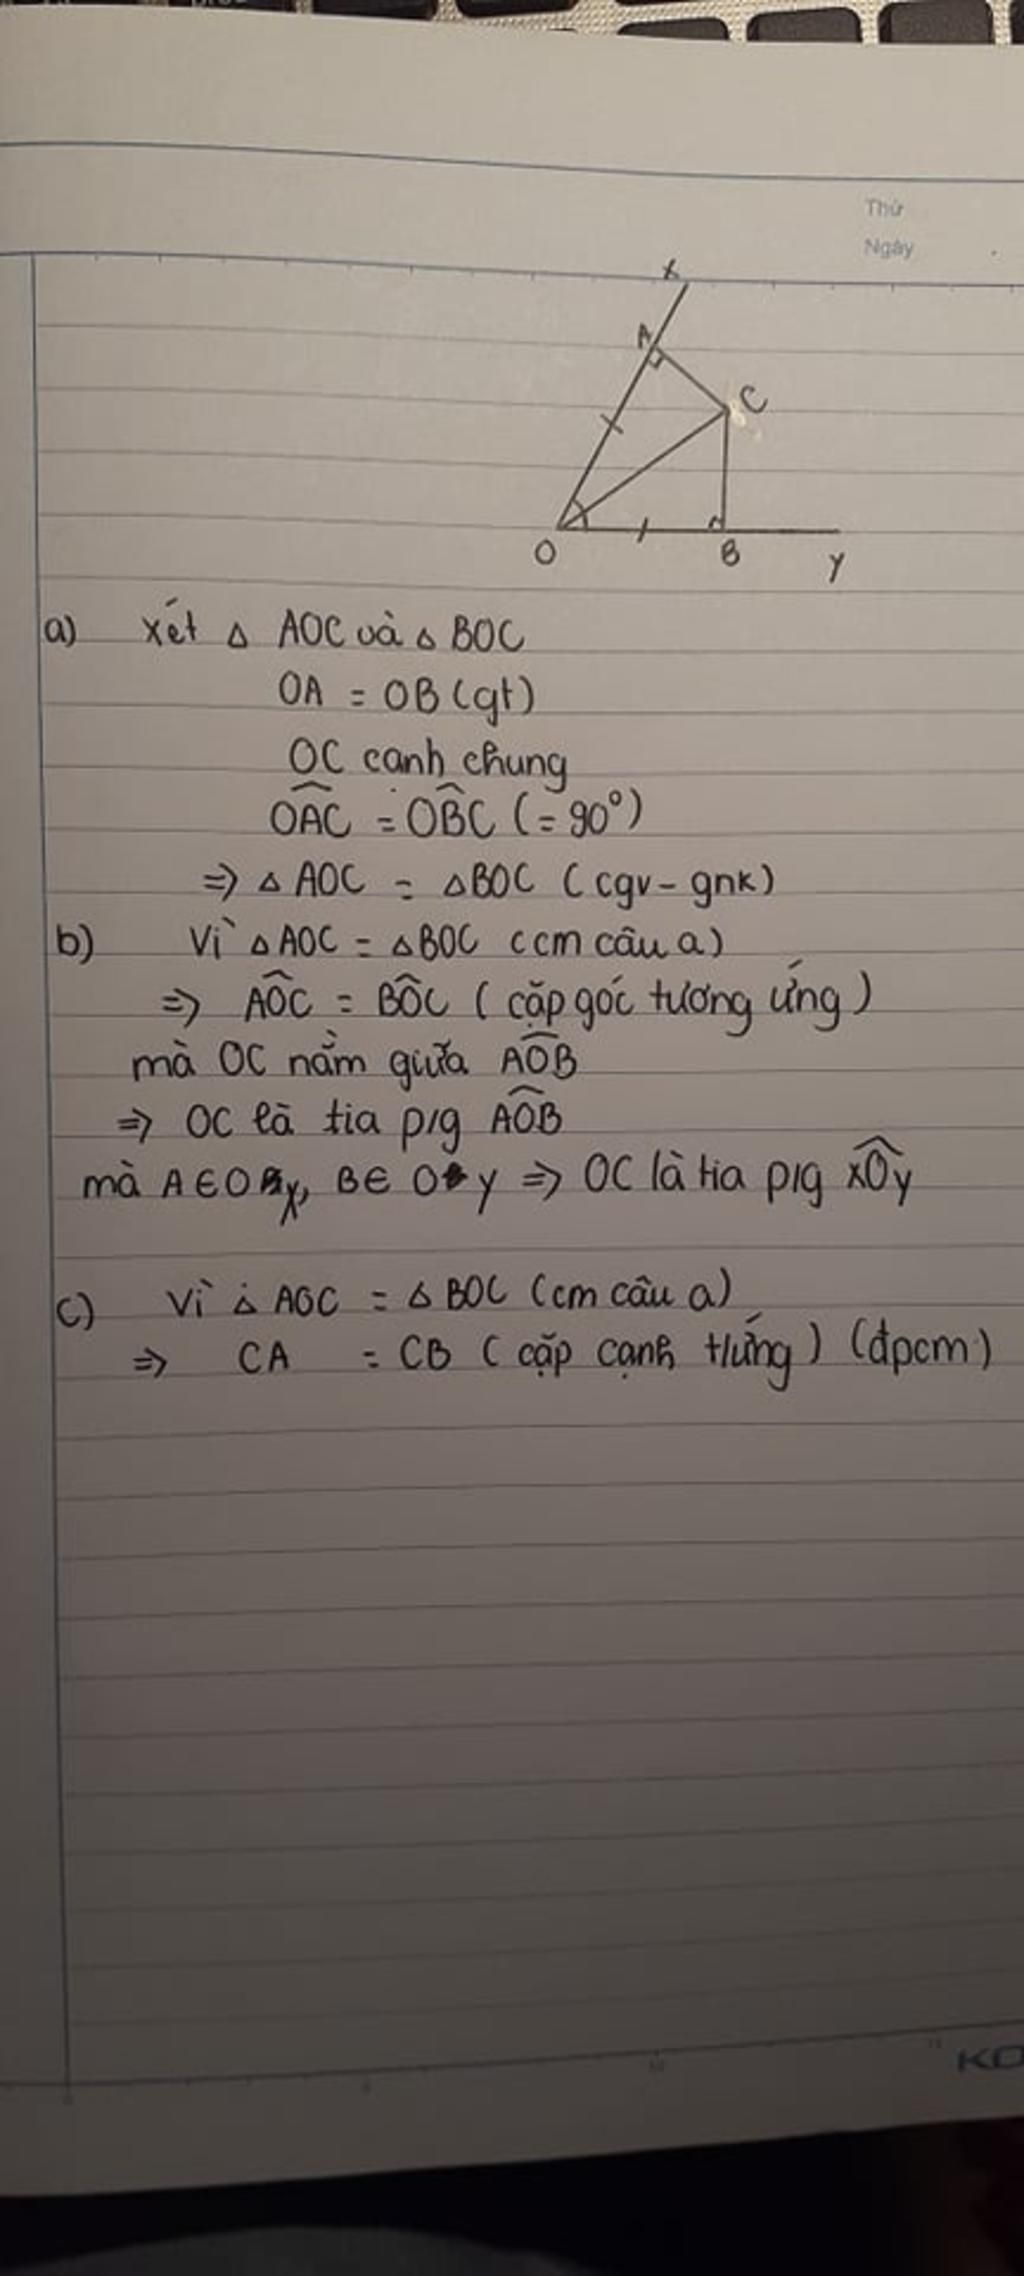 Thứ
Ngày
x
A
C
O
B
y
a) xét △ AOC và △ BOC
OA = OB (gt)
OC cạnh chung
OAC = OBC (= 90°)
=> △ AOC = △ BOC (cgv - gnk)
b) Vì △ AOC = △ BOC (cm câu a)
=> AOC = BOC (cặp góc tương ứng)
mà OC nằm giữa AOB
=> OC là tia p/g AOB
mà A ∈ Ox, B ∈ Oy => OC là tia p/g xOy
c) Vì △ AOC = △ BOC (cm câu a)
=> CA = CB (cặp cạnh t/ứng) (đpcm)
10